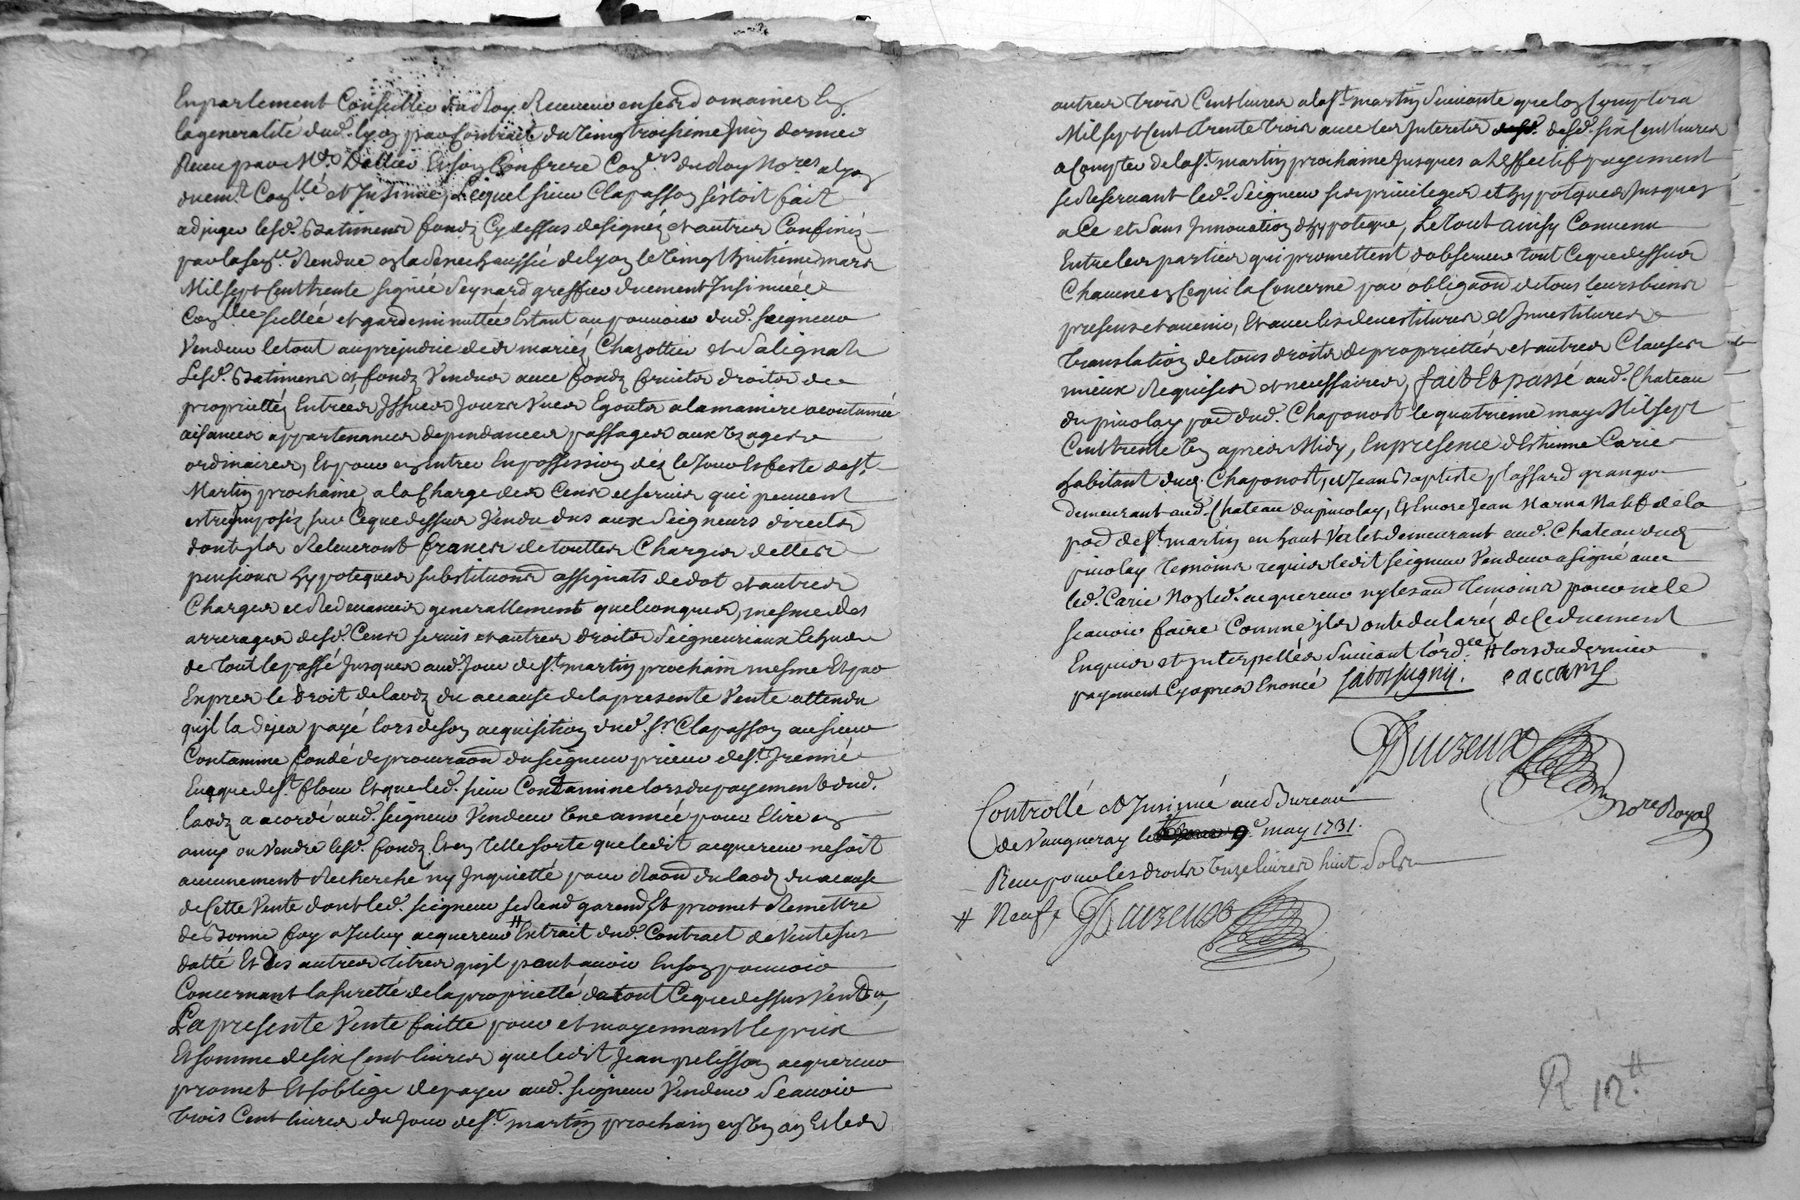 En parlement Conseiller du Roy Receveur en ses domaines En
la generalité dud. lyon par Contract du vingt troisieme Juin dernier
Receu par Me Dallier Et son Confrere Coners du Roy Nores a lyon
duemt Conllé et Insinué, Lequel sieur Clapasson s'estoit fait
adjuger lesd. Batimens fondz Cy dessus designéz et autres Confinéz
par la sence Rendue en la Senechaussée de lyon le vingt huitieme mars
Mil sept Cent trente signée Seynard greffier duement Insinuée
Conllée sellée et garde minuttée Estant au pouvoir dud. seigneur
Vendeur le tout au prejudice des mariéz Chazottier et Salignat
Lesd. Batimens et fondz Vendus avec fondz fruits droits de
proprietéz Entrées Issues Jours Vues Egouts a la maniere acoutumée
aisances appartenances dependances passages aux Usages
ordinaires, Et pour en entrer En possession déz le Jour Et feste de st
Martin prochaine, a la Charge des Cens et servis qui peuvent
estre imposés sur Ce que dessus Vendu dus aux Seigneurs directs
dont ylz Releveront francs de touttes Charges dettes
pensions hypoteques substituons assignats de dot et autres
Charges et Redevances generallement quelconques, mesme des
arrerages desd. Cens servis et autres droits Seigneuriaux Echus
de tout le passé Jusques aud. Jour de st martin prochain mesme Et par
Exprez le droit de laodz du a cause de la presente Vente attendu
qu'jl la dejea payé lors de son acquisition dud. sr Clapasson au sieur
Contamine fondé de procuraon du seigneur prieur de st Irennée
Eveque de st flour Et que led. sieur Contamine lors du payement dud.
laodz a acordé aud. seigneur Vendeur Une année pour Elire en
amy ou vendre lesd. fondz En telle sorte que ledit acquereur ne soit
aucunement Recherché ny Inquietté pour Raon du laodz du a cause
de Cette Vente dont led. seigneur se Rend garend Et promet Remettre
de Bonne foy a Iceluy acquereur # Extrait dud. Contract de Vente sus
datté Et des autres titres qu'jl peut avoir En son pouvoir
Concernant la suretté de la proprietté de tout Ce que dessus Vendu,
La presente Vente faitte pour et moyennant le prix
Et somme de six Cent livres que ledit Jean pelisson acquereur
promet Et s'oblige de payer aud. seigneur Vendeur Scavoir
trois Cent livres du Jour de st martin prochain en Un an Et les
autres trois Cent livres a la st martin suivante que l'on Comptera
Mil sept Cent trente trois avec les Interets desd. six Cent livres
a Compter de la st martin prochaine Jusques a l'effectif payement
se Reservant led. Seigneur ses privileges et hypoteques Jusques
a Ce et sans Innovation d'hypoteque, Le tout ainsy Convenu
Entre les parties qui promettent d'observer tout Ce que dessus
Chacune en Ce qui la Concerne par obligaon de tous leurs biens
presens et avenir, Et avec les devestitures et Investitures
translation de tous droits de proprietés et autres Clauses
mieux Requises et necessaires, fait Et passé aud. Chateau
du pivolay psse dud. Chaponost le quatrieme may Mil sept
Cent trente Un apres Midy, En presence d'Estienne Carie
habitant dud. Chaponost, et Jean Baptiste plassard granger
demeurant aud. Chateau du pivolay, Et More Jean natif de la
psse de st martin en haut Valet demeurant aud. Chateau dud.
pivolay temoins requis ledit seigneur Vendeur a signé avec
led. Carie Non led. acquereur ny les aud temoins pour ne le
scavoir faire Comme ils ont declaréz de Ce duement
Enquis et Interpellés suivant l'ordce # lors du dernier
payement Cy apres Enoncé E accary
Duizeux
Nore Royal
Controllé et Insinué au Bureau
de Vaugneray le 9e may 1731.
Receu pour les droits Unze livres huit Sols
# Neuf. Duizeux
R 12#